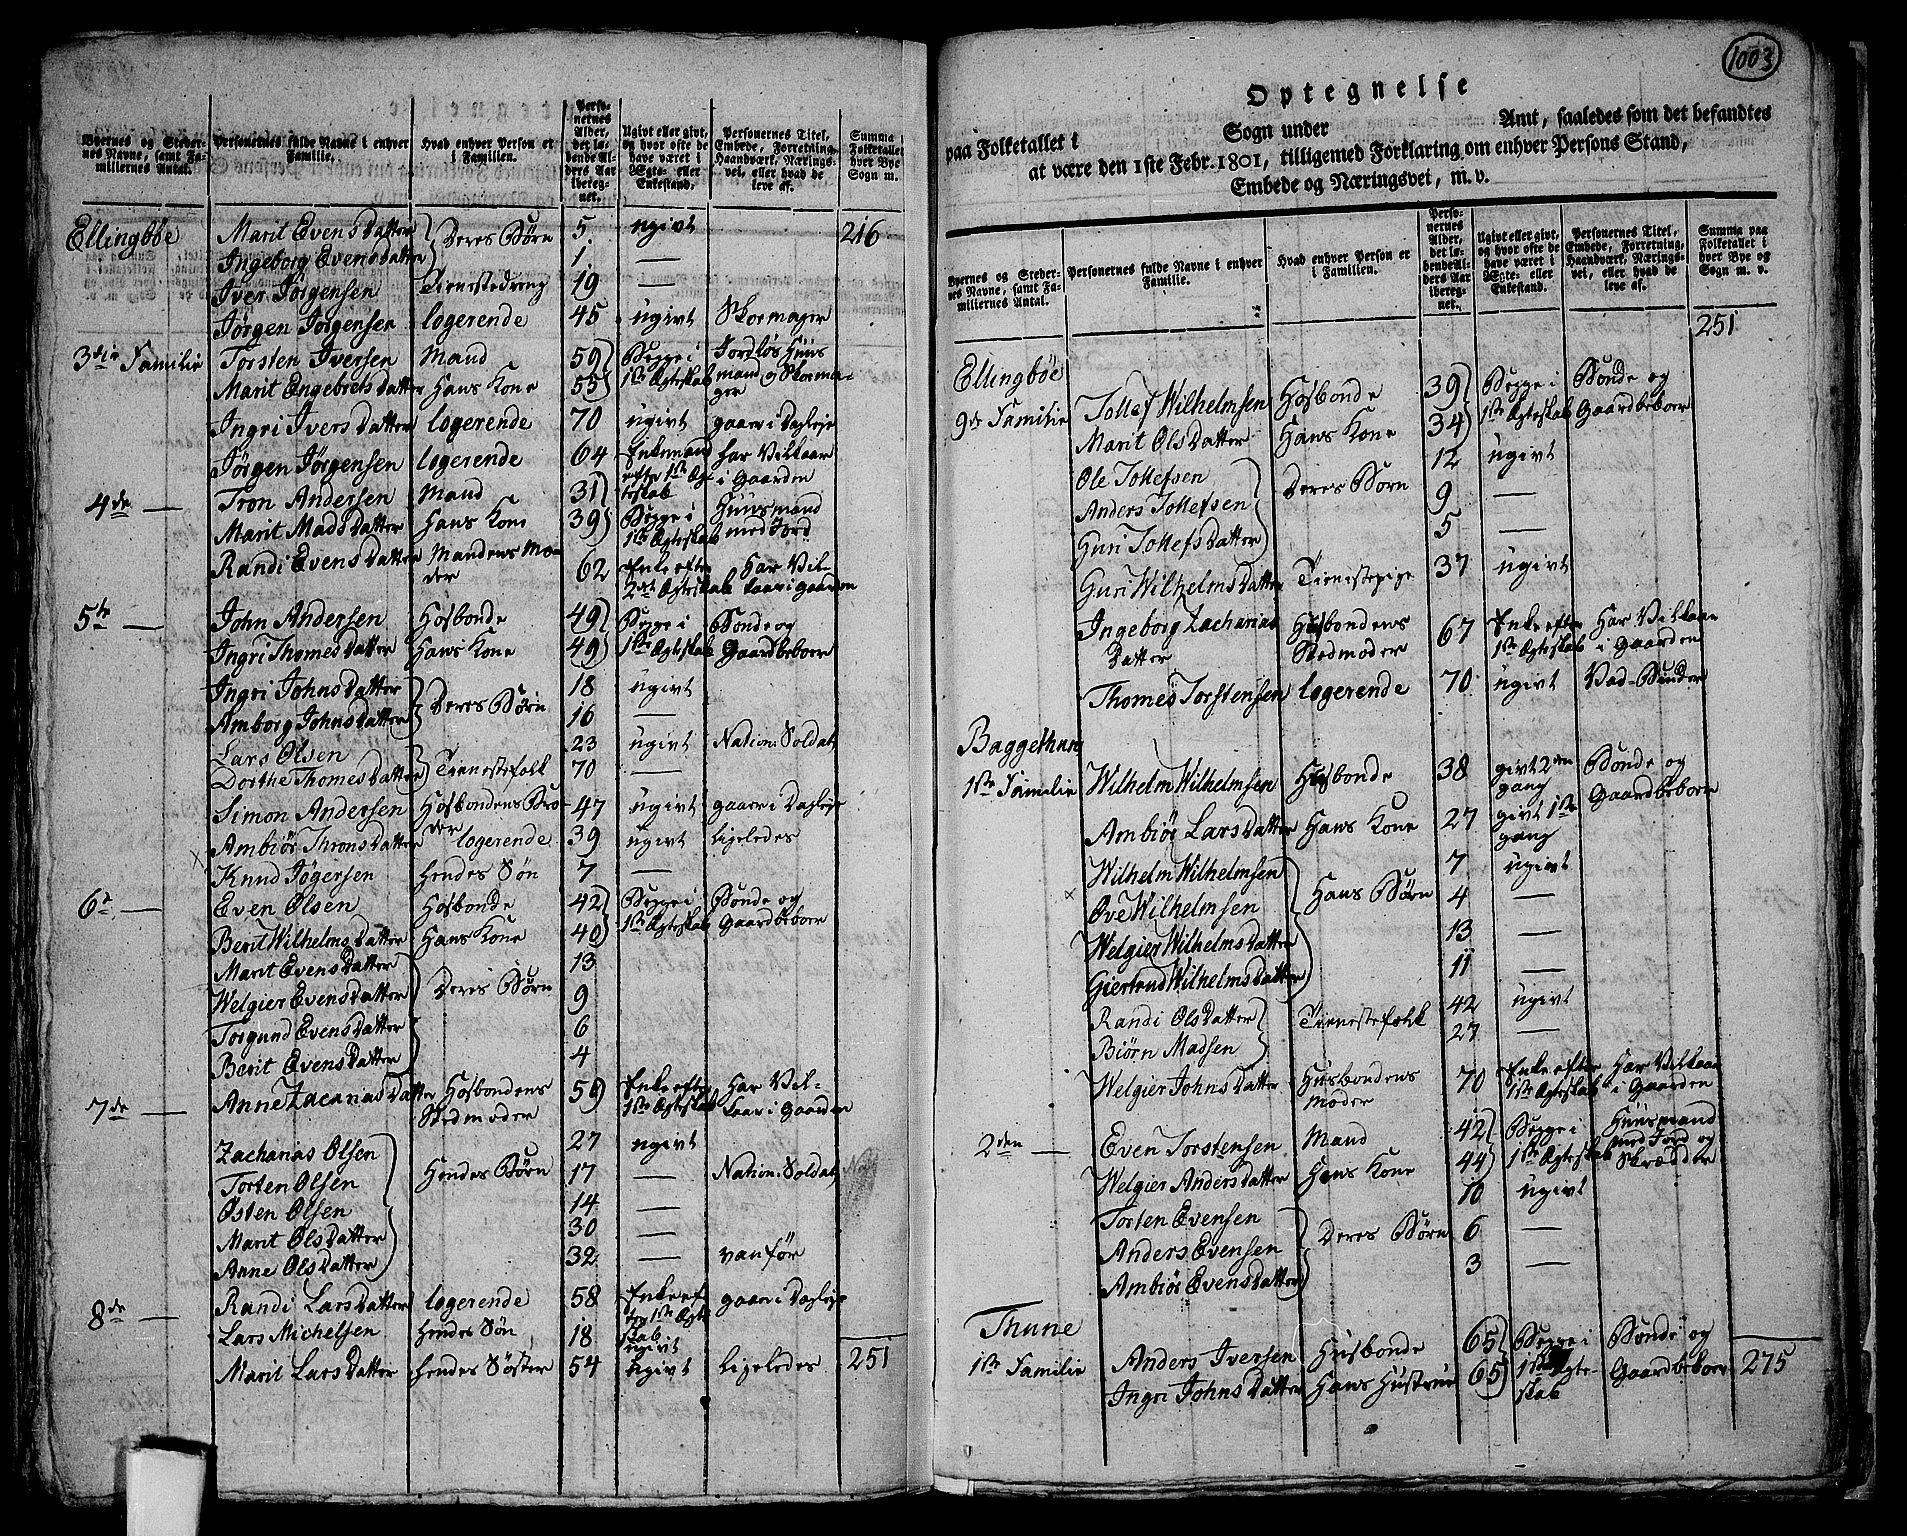 Byernes og Stedernes Navne, samt Familiernes Antal. | Personernes fulde Navne i enhver Familie. | Hvad enhver Person er i Familien. | Personernes Alder, det løbende Alders Aar iberegnet. | Ugivt eller givt, og hvor ofte de have været i Ægte- eller Enkestand. | Personernes Titel, Embede, Forretning, Haandværk, Næringsvei, eller hvad de leve af. | Summa Folketallet hver Bye Sogn m.
Ellingbøe | Marit Evens Datter | Deres Børn | 5. | ugivt | 216
Ingeborg Evens datter | 1. | —
Iver Jørgensen | Tienestedreng | 19 | —
Jørgen Jørgensen | logerende | 45 | ugivt | Skormager
3die Familie | Torsten Iversen | Mand | 59 | Begge i | Jordløs Huus
Marit Engebrets datter | Hans Kone | 55 | 1ste Ægteskab | mand, Skormager
Ingri Ivers Datter | logerende | 70 | ugivt | gaar i Dagleje
Jørgen Jørgensen | logerende | 64 | Enkemand efter 1ste Ægteskab | har Vilkaar i Gaarden
4de — | Tron Andersen | Mand | 31 | Begge i | Huusmand
Marit Mads Datter | Hans Kone | 39 | 1ste Ægteskab | med Jord
Randi Evens Datter | Mandens Moder | 62 | Enke efter 2det Ægteskab | Har Vilkaar i Gaarden
5te — | John Andersen | Hosbonde | 49 | Begge i | Bonde og
Ingri Thomes Datter | Hans Kone | 49 | 1ste Ægteskab | Gaardbeboer
Ingri Johns Datter | Deres Børn | 18 | ugivt
Amborg Johns datter | 16 | —
Lars Olsen | Tienestefolk | 23 | ugivt | Nation: Soldat
Dorthe Thomes Datter | 70 | —
Simon Andersen | Hosbondens Broder | 47 | ugivt | gaar i Dagleje
Ambiør Throns Datter | logerende | 39 | ugivt | ligeledes
Knud Jøgersen | Hendes Søn | 7 | —
6te — | Even Olsen | Hosbonde | 42 | Begge i | Bonde og
Berit Wilhelms Datter | Hans Kone | 40 | 1ste Ægteskab | Gaardbeboer
Marit Evens Datter | Deres Børn | 13
Welgier Evens Datter | 9
Torgund Evens Datter | 6
Berit Evens Datter | 4
7de — | Anne Zacarias Datter | Hosbondens Stedmoder | 59 | Enke efter 1ste Ægteskab | Har Vilkaar i Gaarden
Zacharias Olsen | Hendes Børn | 27 | ugivt
Torten Olsen | 17 | — | Nation: Soldat
Østen Olsen | 14 | —
Marit Ols Datter | 30 | —
Anne Ols Datter | 32 | — | vanfør
8de — | Randi Lars Datter | logerende | 58 | Enke efter 1ste Ægteskab | gaar i Dagleje
Lars Michelsen | Hendes Søn | 18 | ugivt
Marit Lars Datter | Hendes Søster | 54 | ugivt | ligeledes | 251
1003
Optegnelse
paa Folketallet i Sogn under Amt, saaledes som det befandtes
at være den 1ste Febr. 1801, tilligemed Forklaring om enhver Persons Stand,
Embede og Næringsvei, m. v.
Byernes og Stedernes Navne, samt Familiernes Antal. | Personernes fulde Navne i enhver Familie. | Hvad enhver Person er i Familien. | Personernes Alder, det løbende Alders Aar iberegnet. | Ugivt eller givt, og hvor ofte de have været i Ægte- eller Enkestand. | Personernes Titel, Embede, Forretning, Haandværk, Næringsvei, eller hvad de leve af. | Summa paa Folketallet i hver Bye og Sogn m. v.
251
Ellingbøe
9de Familie | Tollef Wilhelmsen | Hosbonde | 39 | Begge i | Bonde og
Marit Ols Datter | Hans Kone | 34 | 1ste Ægteskab | Gaardbeboer
Ole Tollefsen | Deres Børn | 12 | ugivt
Anders Tollefsen | 9 | —
Guri Tollefs Datter | 5 | —
Guri Wilhelms Datter | Tienestepige | 37 | ugivt
Ingeborg Zacharias Datter | Husbondens Stedmoder | 67 | Enke efter 1ste Ægteskab | Har Vilkaar i Gaarden
Thomes Torstensen | logerende | 70 | ugivt | Vad-Binder
Baggethun
1ste Familie | Wilhelm Wilhelmsen | Husbonde | 38 | givt 2den gang | Bonde og Gaardbeboer
Ambiør Lars Datter | Hans Kone | 27 | givt 1ste gang
Wilhelm Wilhelmsen | Hans Børn | 7 | ugivt
Ove Wilhelmsen | 4 | —
Welgier Wilhelms datter | 13 | —
Giertrud Wilhelms datter | 11 | —
Randi Ols Datter | Tienestefolk | 42 | ugivt
Biørn Madsen | 27 | —
Welgier Johns Datter | Husbondens Moder | 70 | Enke efter 1ste Ægteskab | Har Vilkaar i Gaarden
2den — | Even Torstensen | Mand | 42 | Begge i | Huusmand med Jord og
Welgier Anders datter | Hans Kone | 44 | 1ste Ægteskab | Skrædder
Torten Evensen | Deres Børn | 10 | ugivt
Anders Evensen | 6 | —
Ambiør Evens Datter | 3 | —
Thune
1ste Familie | Anders Iversen | Husbonde | 65 | Begge i | Bonde og
Ingri Johns Datter | Hans Hustrue | 65 | 1ste Ægteskab | Gaardbeboer | 275